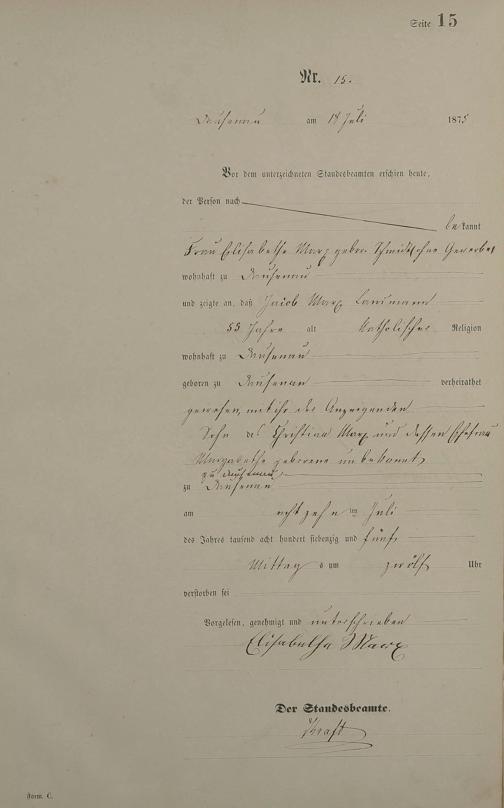 Seite 15
Nr. 15.
Dausenau am 18 Juli 1875
Vor dem unterzeichneten Standesbeamten erschien heute,
der Person nach
bekannt
Frau Elisabethe Marx geborn Schmidt ohne Gewerbe
wohnhaft zu Dausenau
und zeigte an, daß Jacob Marx Landmann
55 Jahre alt katholischer Religion
wohnhaft zu Dausenau
geboren zu Dausenau verheirathet
gewesen mit ihr der Anzeigenden
Sohn des Christian Marx und dessen Ehefrau
Margarethe geborene unbekannt
zu Dausenau
zu Dausenau
am acht zehn ten Juli
des Jahres tausend acht hundert siebenzig und fünf
Mittags um zwölf Uhr
verstorben sei
Vorgelesen, genehmigt und unterschrieben
Elisabetha Marx
Der Standesbeamte.
Kraft
Form. C.